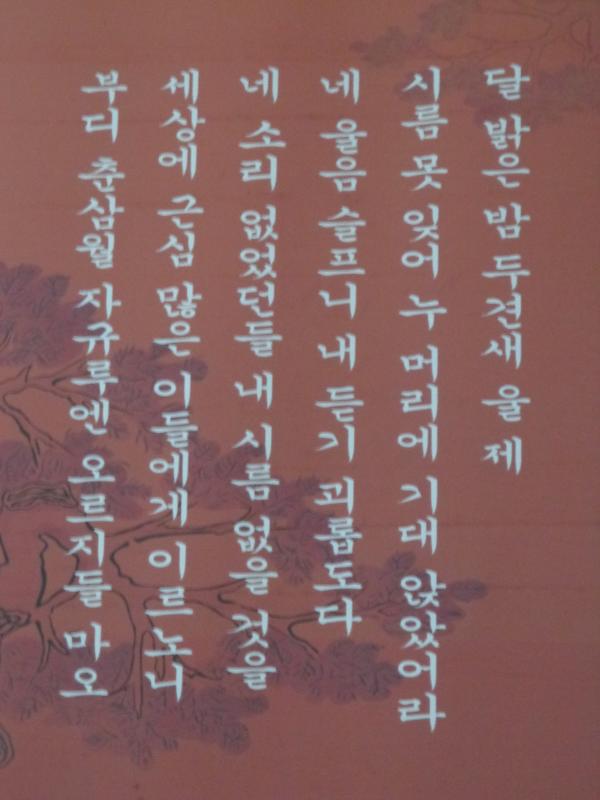 달 밝은 밤 두견새 울 제
시름 못 잊어 누 머리에 기대 앉았어라
네 울음 슬프니 내 듣기 괴롭도다
네 소리 없었던들 내 시름 없을 것을
세상에 근심 많은 이들에게 이르노니
부디 춘삼월 자규루엔 오르지들 마오